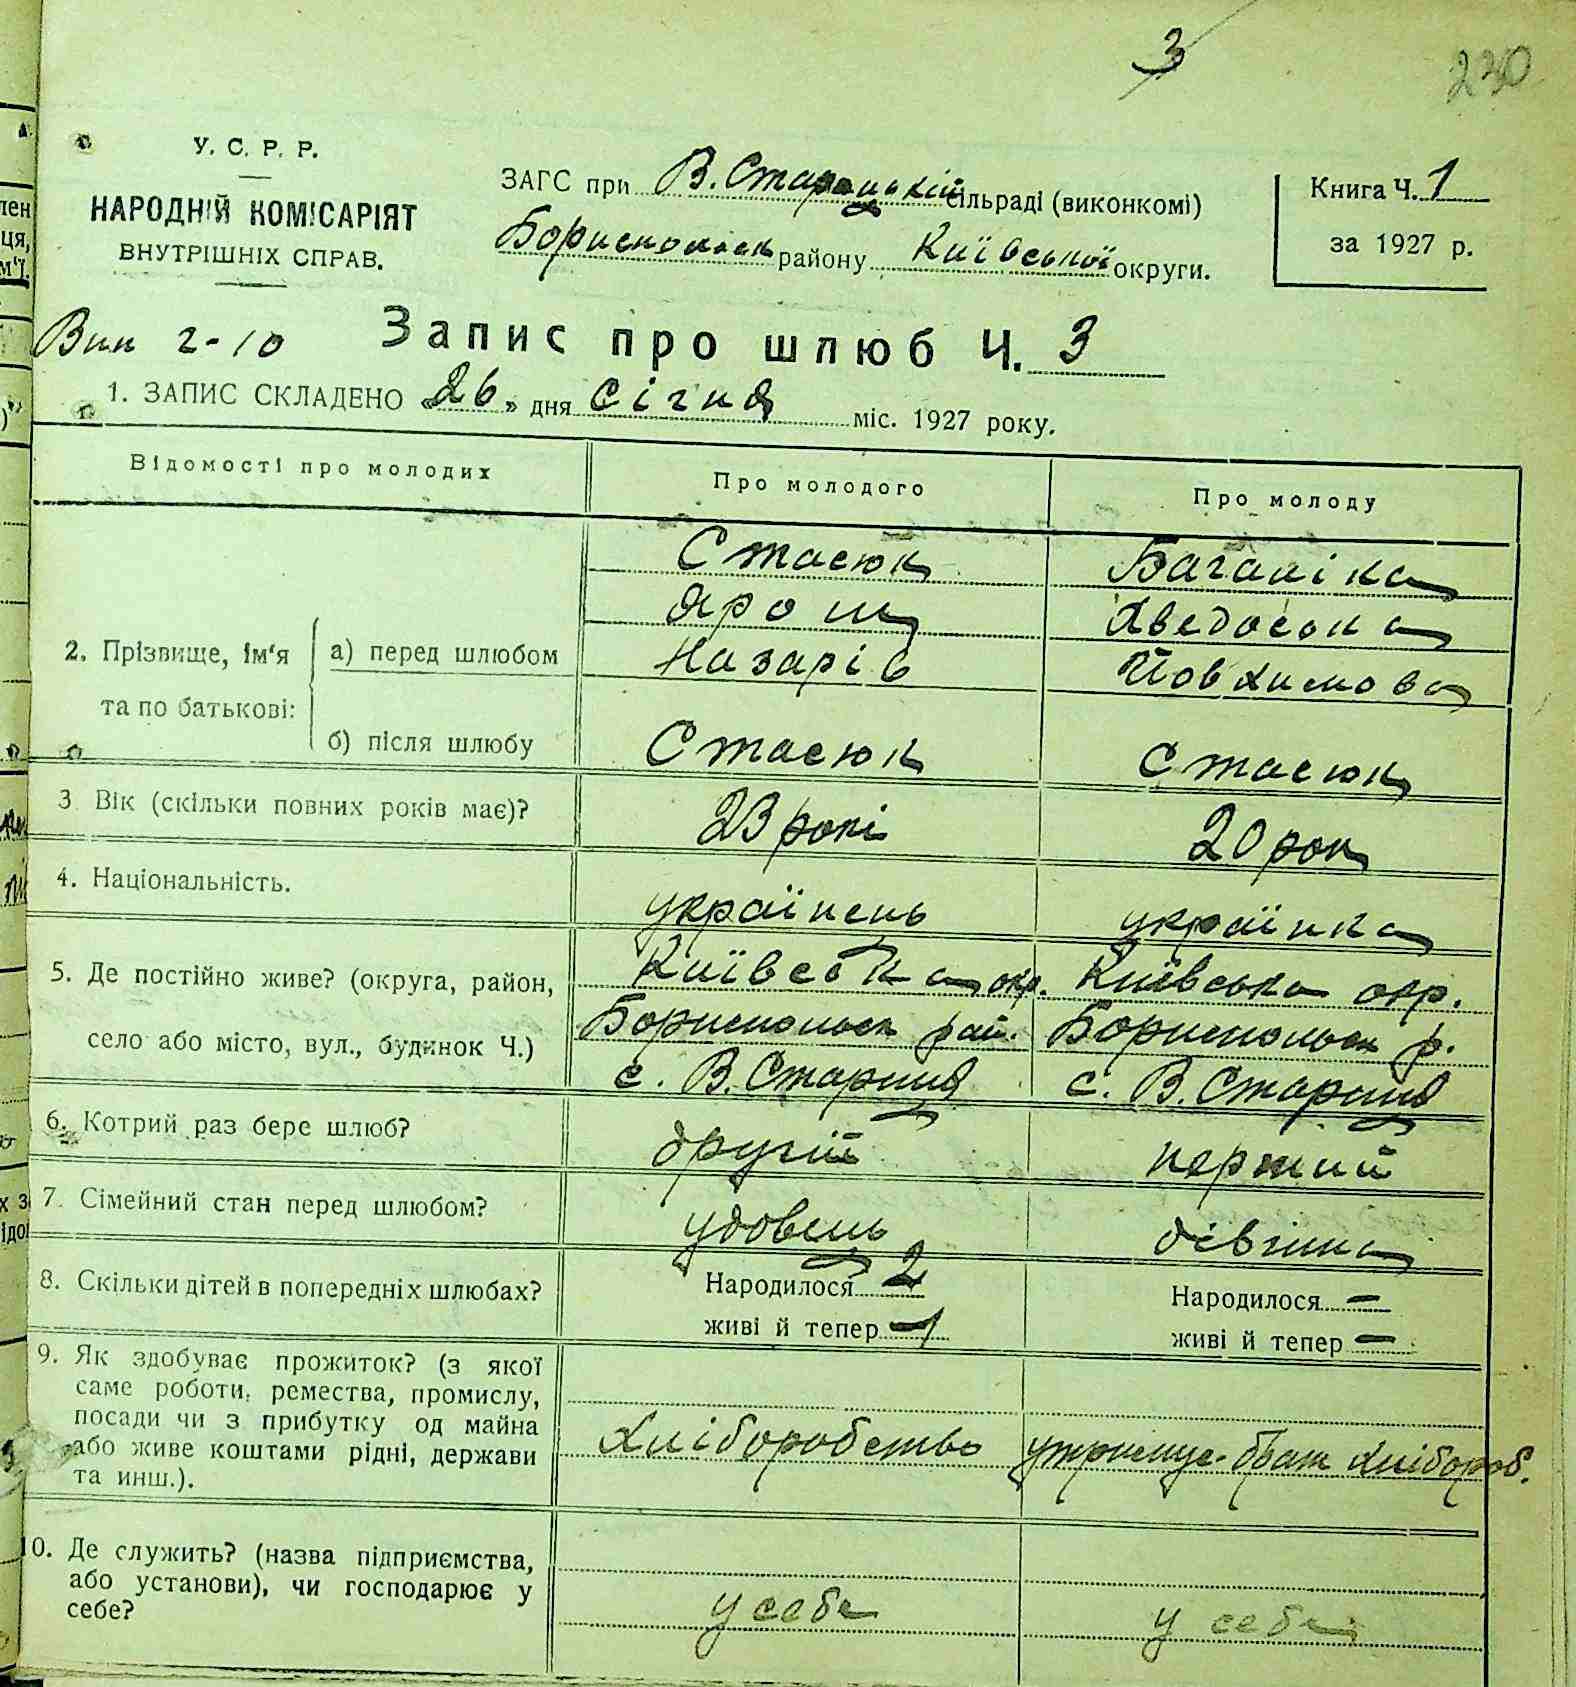 3
230
У. С. Р. Р.
НАРОДНІЙ КОМІСАРІЯТ
ВНУТРІШНІХ СПРАВ.
ЗАГС при В. Старицькій сільраді (виконкомі)
Бориспольск району Київської округи.
Книга Ч. 1
за 1927 р.
Вип 2-10
Запис про шлюб Ч. 3
1. ЗАПИС СКЛАДЕНО „26„ дня Січня міс. 1927 року.
Відомості про молодих
Про молодого
Про молоду
2. Прізвище, ім'я та по батькові:
а) перед шлюбом
Стасюк
Ярош
Назарів
Багапіка
Хведоська
Йовхимова
б) після шлюбу
Стасюк
Стасюк
3 Вік (скільки повних років має)?
23 рокі
20 рок
4. Національність.
українець
українка
5. Де постійно живе? (округа, район,
село або місто, вул., будинок Ч.)
Київська окр.
Бориспольск рай.
с. В. Стариця
Київська окр.
Бориспольск р.
с. В. Стариця
6. Котрий раз бере шлюб?
другий
перший
7. Сімейний стан перед шлюбом?
удовець
дівчина
8. Скільки дітей в попередніх шлюбах?
Народилося 2
живі й тепер 1
Народилося —
живі й тепер —
9. Як здобуває прожиток? (з якої
саме роботи, ремества, промислу,
посади чи з прибутку од майна
або живе коштами рідні, держави
та инш.).
Хліборобство
утримує брат хлібороб.
10. Де служить? (назва підприємства,
або установи), чи господарює у
себе?
у себе
у себе